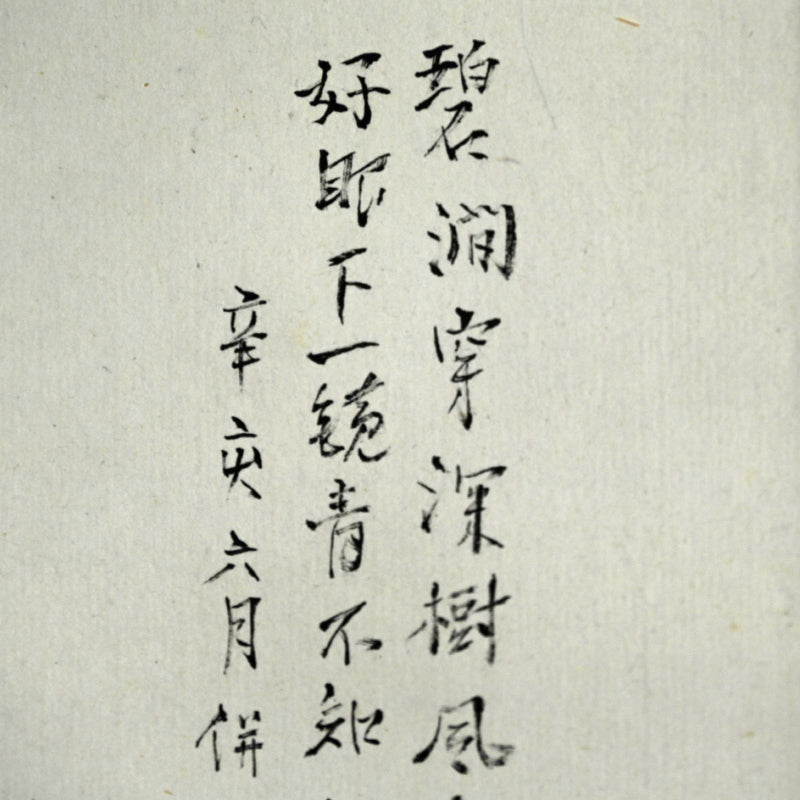 碧澗穿深樹風
好眼下一鏡青不知
辛亥六月併